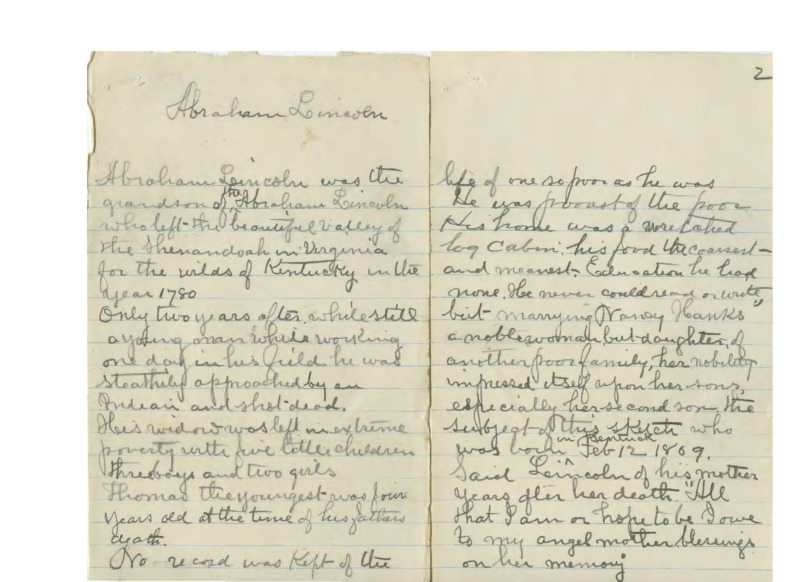 Abraham Lincoln
Abraham Leincoln was the
grandson of the Abraham Lincoln
who left the beautiful valley of
the Shenandoah in Virginia
for the wilds of Kentucky in the
year 1780
Only two years after, while still
a young man while working
one day in his field he was
steathily approached by an
Indean and shot dead.
He's widow was left in extreme
poverty with five little children
three boys and two girls
Thomas the youngest was four
years old at the time of his fathers
death.
No record was kept of the
2
life of one so poor as he was
He was poorest of the poor
His home was a wretched
log cabin, his food the coarsest
and meanest. Education he had
none. He never could read or write
but marrying "Nancy Hanks"
a noble woman but daughter, of
another poor family, her nobility
impressed itself upon her sons,
especially her second son, the
subject of this sketch who
was born in Feb 12 1809.
Said Leincoln of his mother
years after her death "All
that I am or hope to be I owe
to my angel mother blessings
on her memory